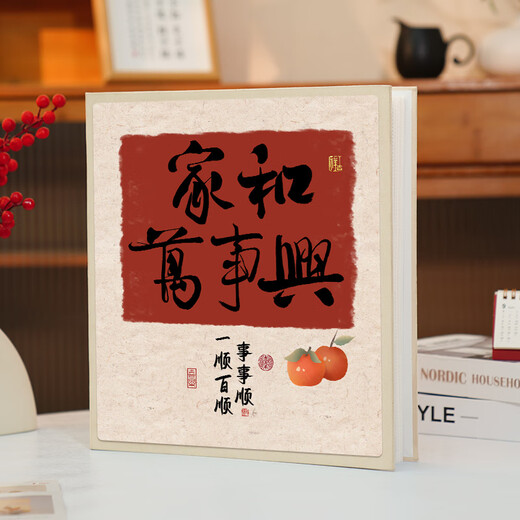 家和
萬事興
事事顺
一顺百顺
NORDIC HOUSEHO
YLE